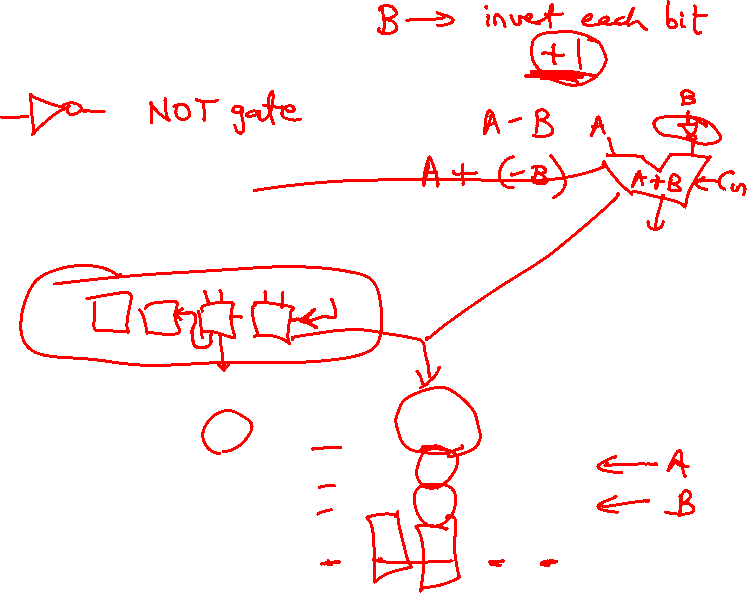 B → invert each bit
+1
NOT gate
A - B
A
B
A + (-B)
A+B
← Cin
← A
← B